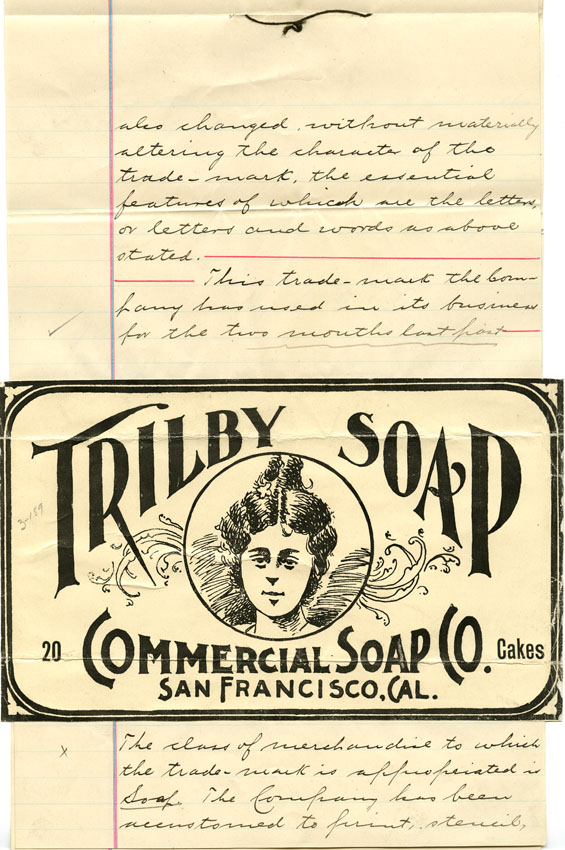 also changed, without materially
altering the character of the
trade-mark, the essential
features of which are the letters,
or letters and words as above
stated.
This trade-mark the Com-
pany has used in its business
for the two months last past
TRILBY SOAP
3-189
20 COMMERCIAL SOAP CO. Cakes
SAN FRANCISCO, CAL.
x The class of merchandise to which
the trade-mark is appropriated is
Soap. The Company has been
accustomed to print, stencil,